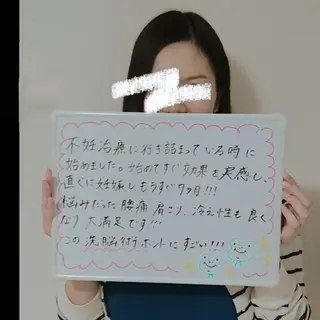 不妊治療に行き詰まっている時に
始めました。始めてすぐ効果を実感し、
直ぐに妊娠し、もうすぐ7ヶ月!!!
悩みだった腰痛 肩こり、冷え性も良く
なり 大満足です!!!
この 洗脳術 ホントにすごい!!!